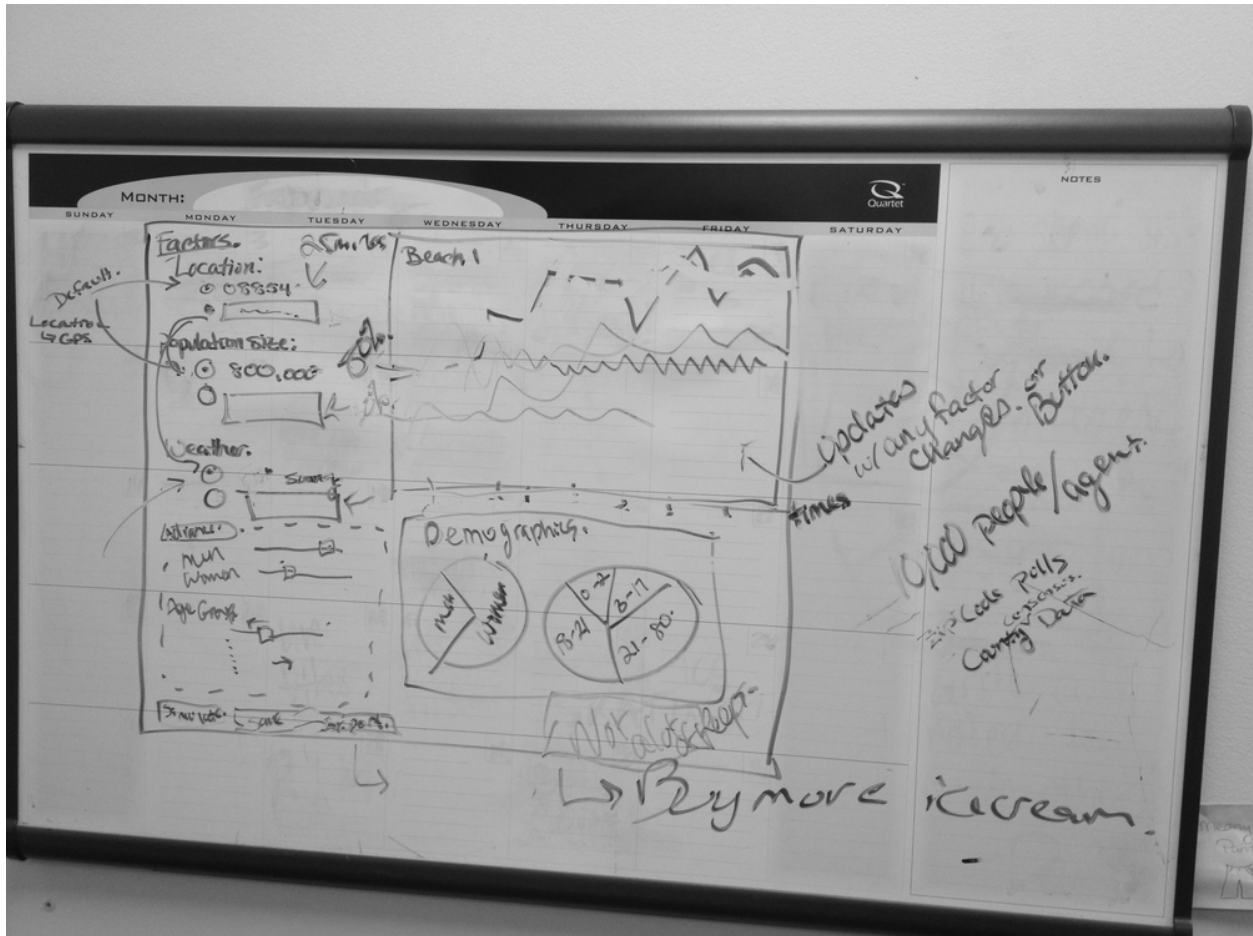 MONTH:
Quartet
NOTES
SUNDAY MONDAY TUESDAY WEDNESDAY THURSDAY FRIDAY SATURDAY
Factors.
25miles
Location:
08854
Default.
Location
GPS
Population Size:
800,000
Weather.
Men
Women
Age Group
Simulate.
Beach 1
times
Demographics.
Men
Women
0-2
3-17
18-21
21-80.
Not a lot of
Buy more icecream.
Updates
w/ any factor
changes. or
Button.
10,000 people/agent.
Zip Code Pulls
County Data